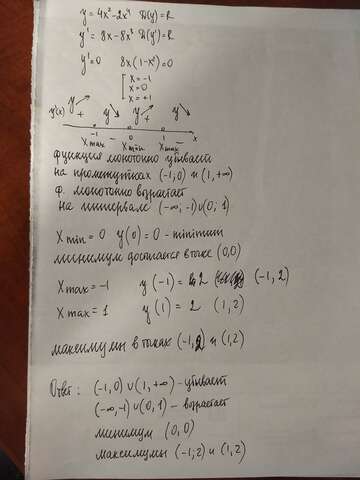 y = 4x² - 2x⁴ D(y) = R
y' = 8x - 8x³ D(y') = R
y' = 0 8x(1-x²) = 0
[ x = -1
x = 0
x = +1
y'(x) y↗ y↘ y↗ y↘
+ - + -
-1 0 1 x
Xmax Xmin Xmax
функция монотонно убывает
на промежутках (-1, 0) и (1, +∞)
ф. монотонно возрастает
на интервале (-∞, -1)∪(0, 1)
Xmin = 0 y(0) = 0 - minimum
минимум достигается в точке (0,0)
Xmax = -1 y(-1) = 2 (-1, 2)
Xmax = 1 y(1) = 2 (1, 2)
максимумы в точках (-1, 2) и (1, 2)
Ответ: (-1, 0)∪(1, +∞) - убывает
(-∞, -1)∪(0, 1) - возрастает
минимум (0, 0)
максимумы (-1; 2) и (1, 2)